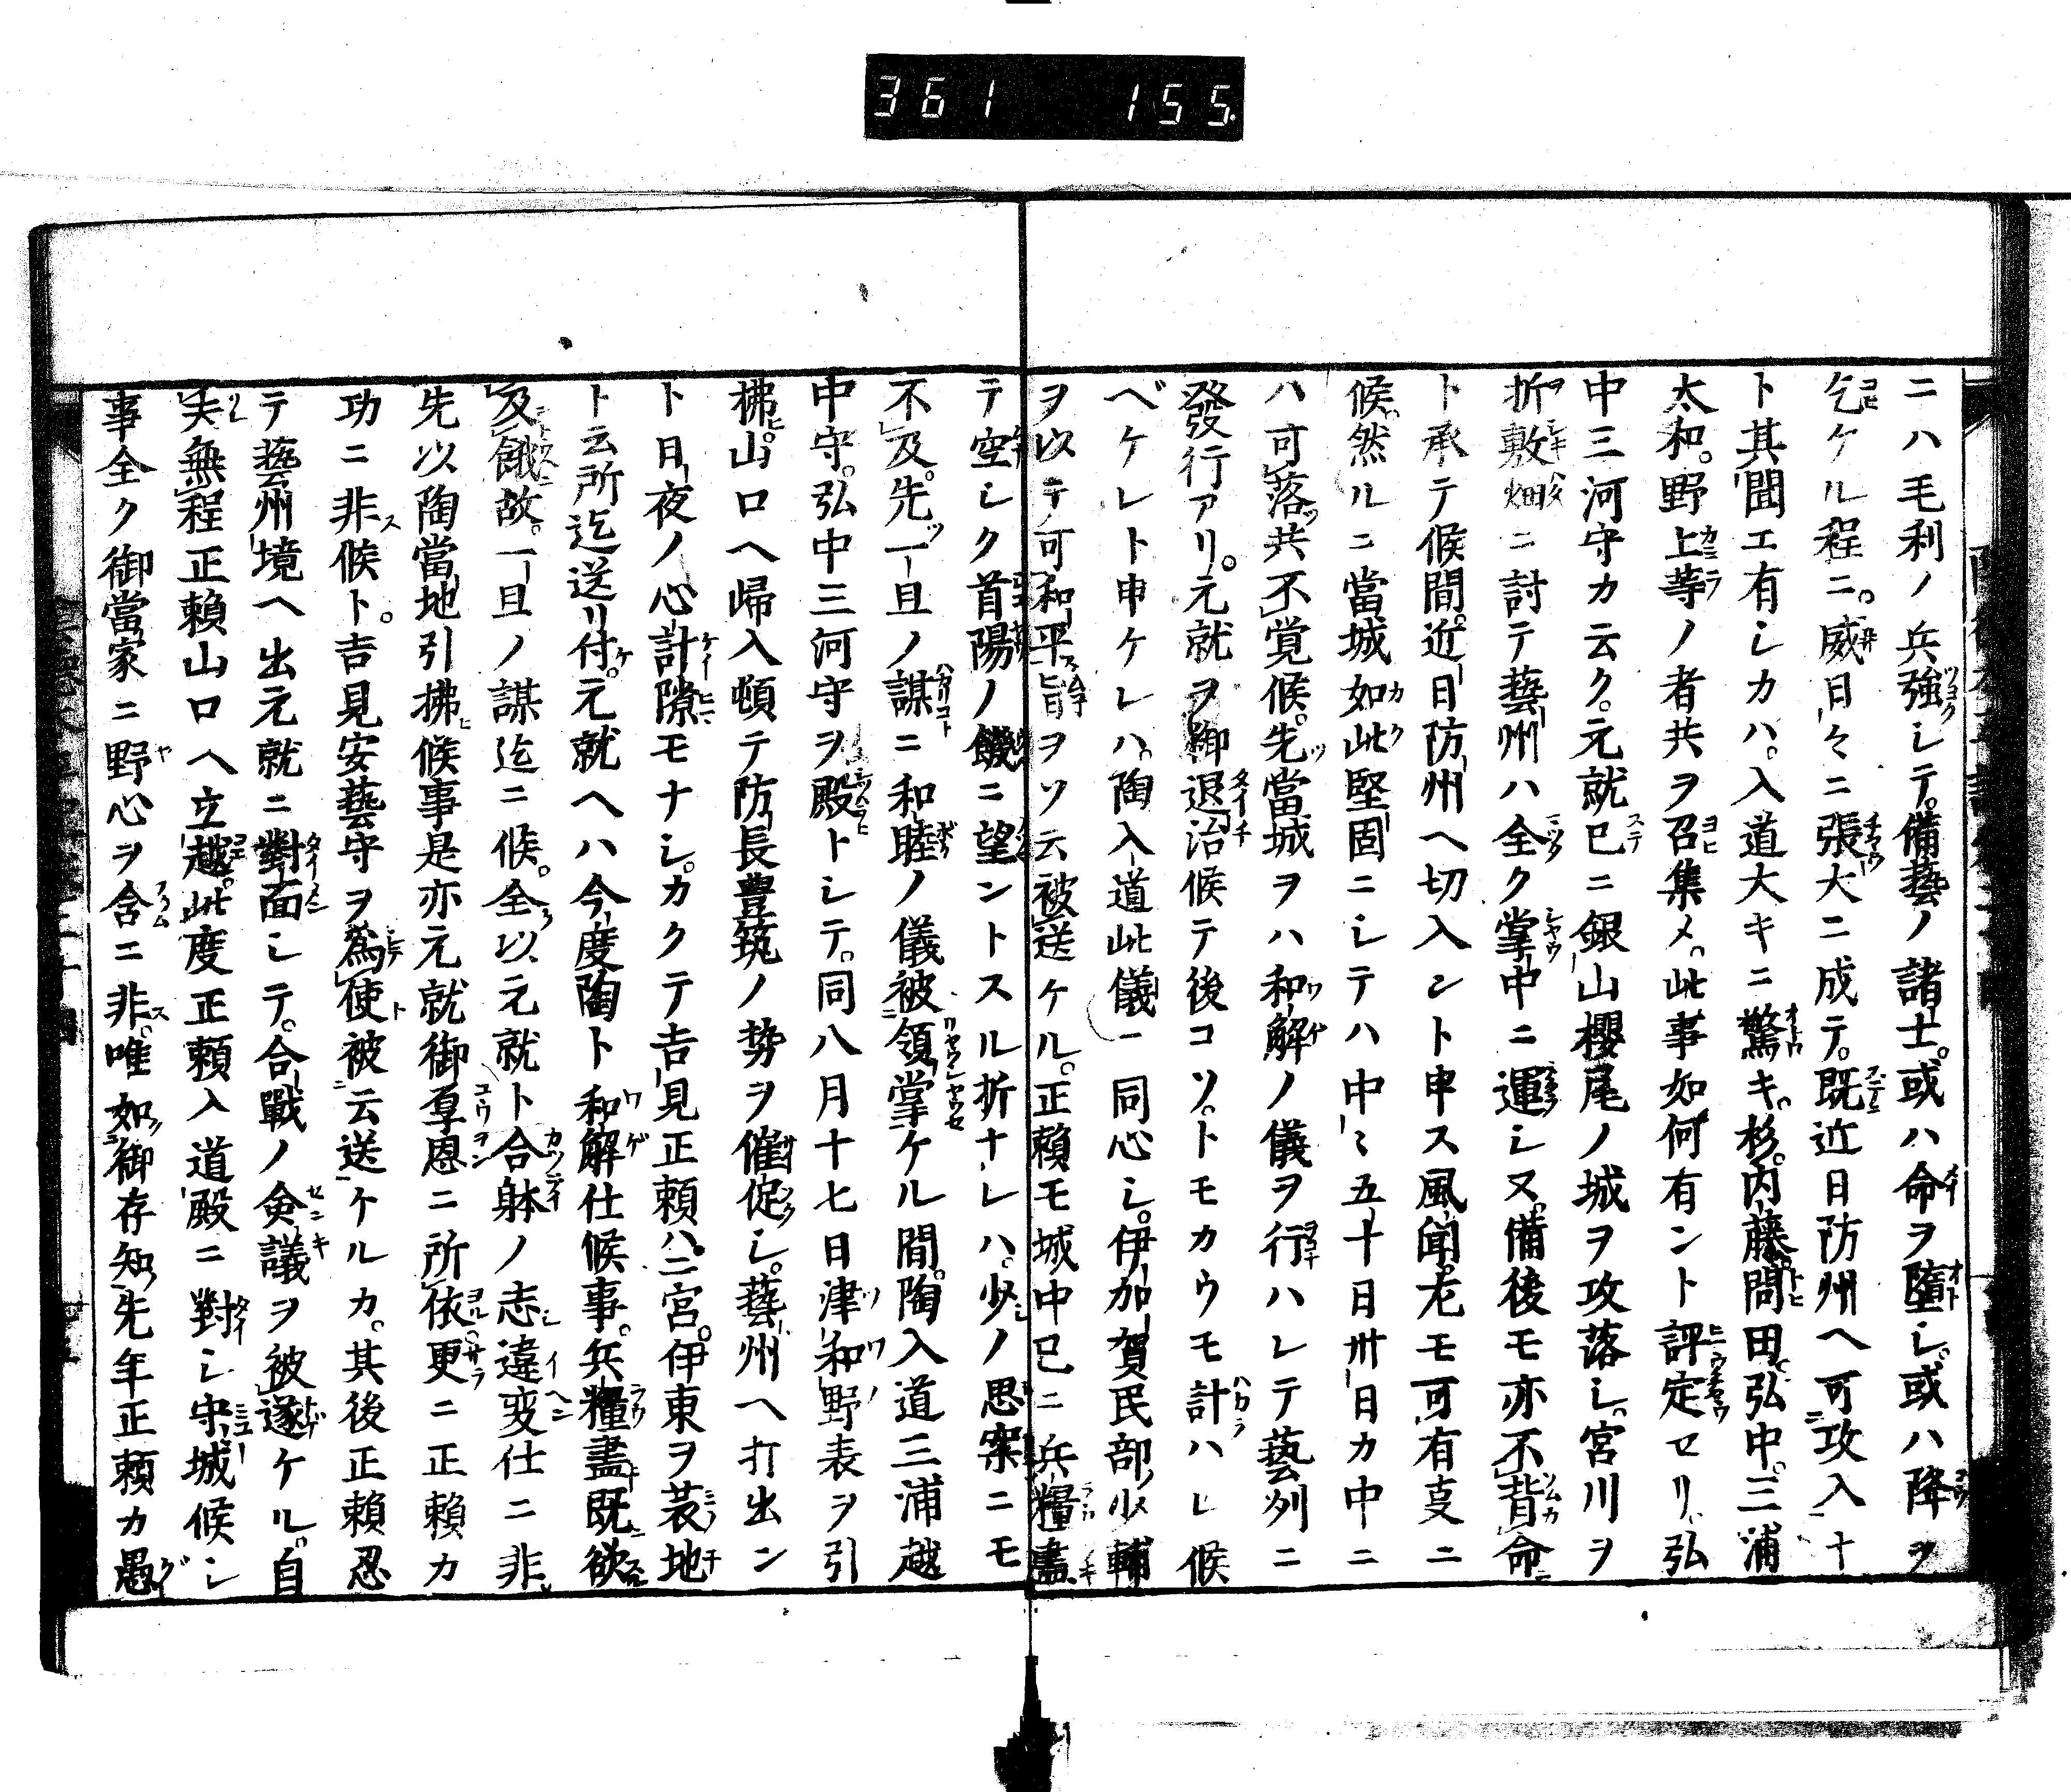 361 155.
ニハ毛利ノ兵強シテ。備藝ノ諸士。或ハ命ヲ墮シ。或ハ降ヲ
乞ケル程ニ。威日々ニ張大ニ成テ。既近日防州ヘ可攻入十
ト其聞エ有シカハ。入道大キニ驚キ。杉。内藤。問田。弘中。三浦
太和。野上等ノ者共ヲ召集メ。此事如何有ント評定セリ。弘
中三河守カ云ク。元就已ニ銀山櫻尾ノ城ヲ攻落シ。宮川ヲ
折敷畑ニ討テ藝州ハ全ク掌中ニ運シ又。備後モ亦不背命
ト承テ候間。近日防州ヘ切入ント申ス風聞。尤モ可有叓ニ
候。然ルニ當城如此堅固ニシテハ中〻五十日卅日カ中ニ
ハ可落共不覚候。先當城ヲハ和解ノ儀ヲ行ハレテ藝列ニ
發行アリ。元就ヲ御退治候テ後コソ。トモカウモ計ハレ候
ベケレト申ケレハ。陶入道此儀ニ同心シ。伊加賀民部少輔
ヲ以テ可和平旨ヲソ云被送ケル。正頼モ城中已ニ兵糧盡
テ空シク首陽ノ饑ニ望ントスル折ナレハ。少ノ思案ニモ
不及。先一旦ノ謀ニ和睦ノ儀被領掌ケル間。陶入道三浦越
中守。弘中三河守ヲ殿トシテ。同八月十七日津和野表ヲ引
拂。山口ヘ歸入頓テ防長豊筑ノ勢ヲ催促シ。藝州ヘ打出ン
ト日夜ノ心計隙モナシ。カクテ吉見正頼ハ。二宮。伊東ヲ蓑地
ト云所迄送リ付。元就ヘハ今度陶ト和解仕候事。兵糧盡既欲
及餓故。一旦ノ謀迄ニ候。全以元就ト合躰ノ志違変仕ニ非
先以陶當地引拂候事是亦元就御厚恩ニ所依更ニ正頼カ
功ニ非候ト。吉見安藝守ヲ為使被云送ケルカ。其後正頼忍
テ藝州境ヘ出元就ニ對面シテ。合戰ノ僉議ヲ被遂ケル。自
夫無程正頼山口ヘ立越。此度正頼入道殿ニ對シ守城候シ
事全ク御當家ニ野心ヲ含ニ非。唯如御存知先年正頼カ愚